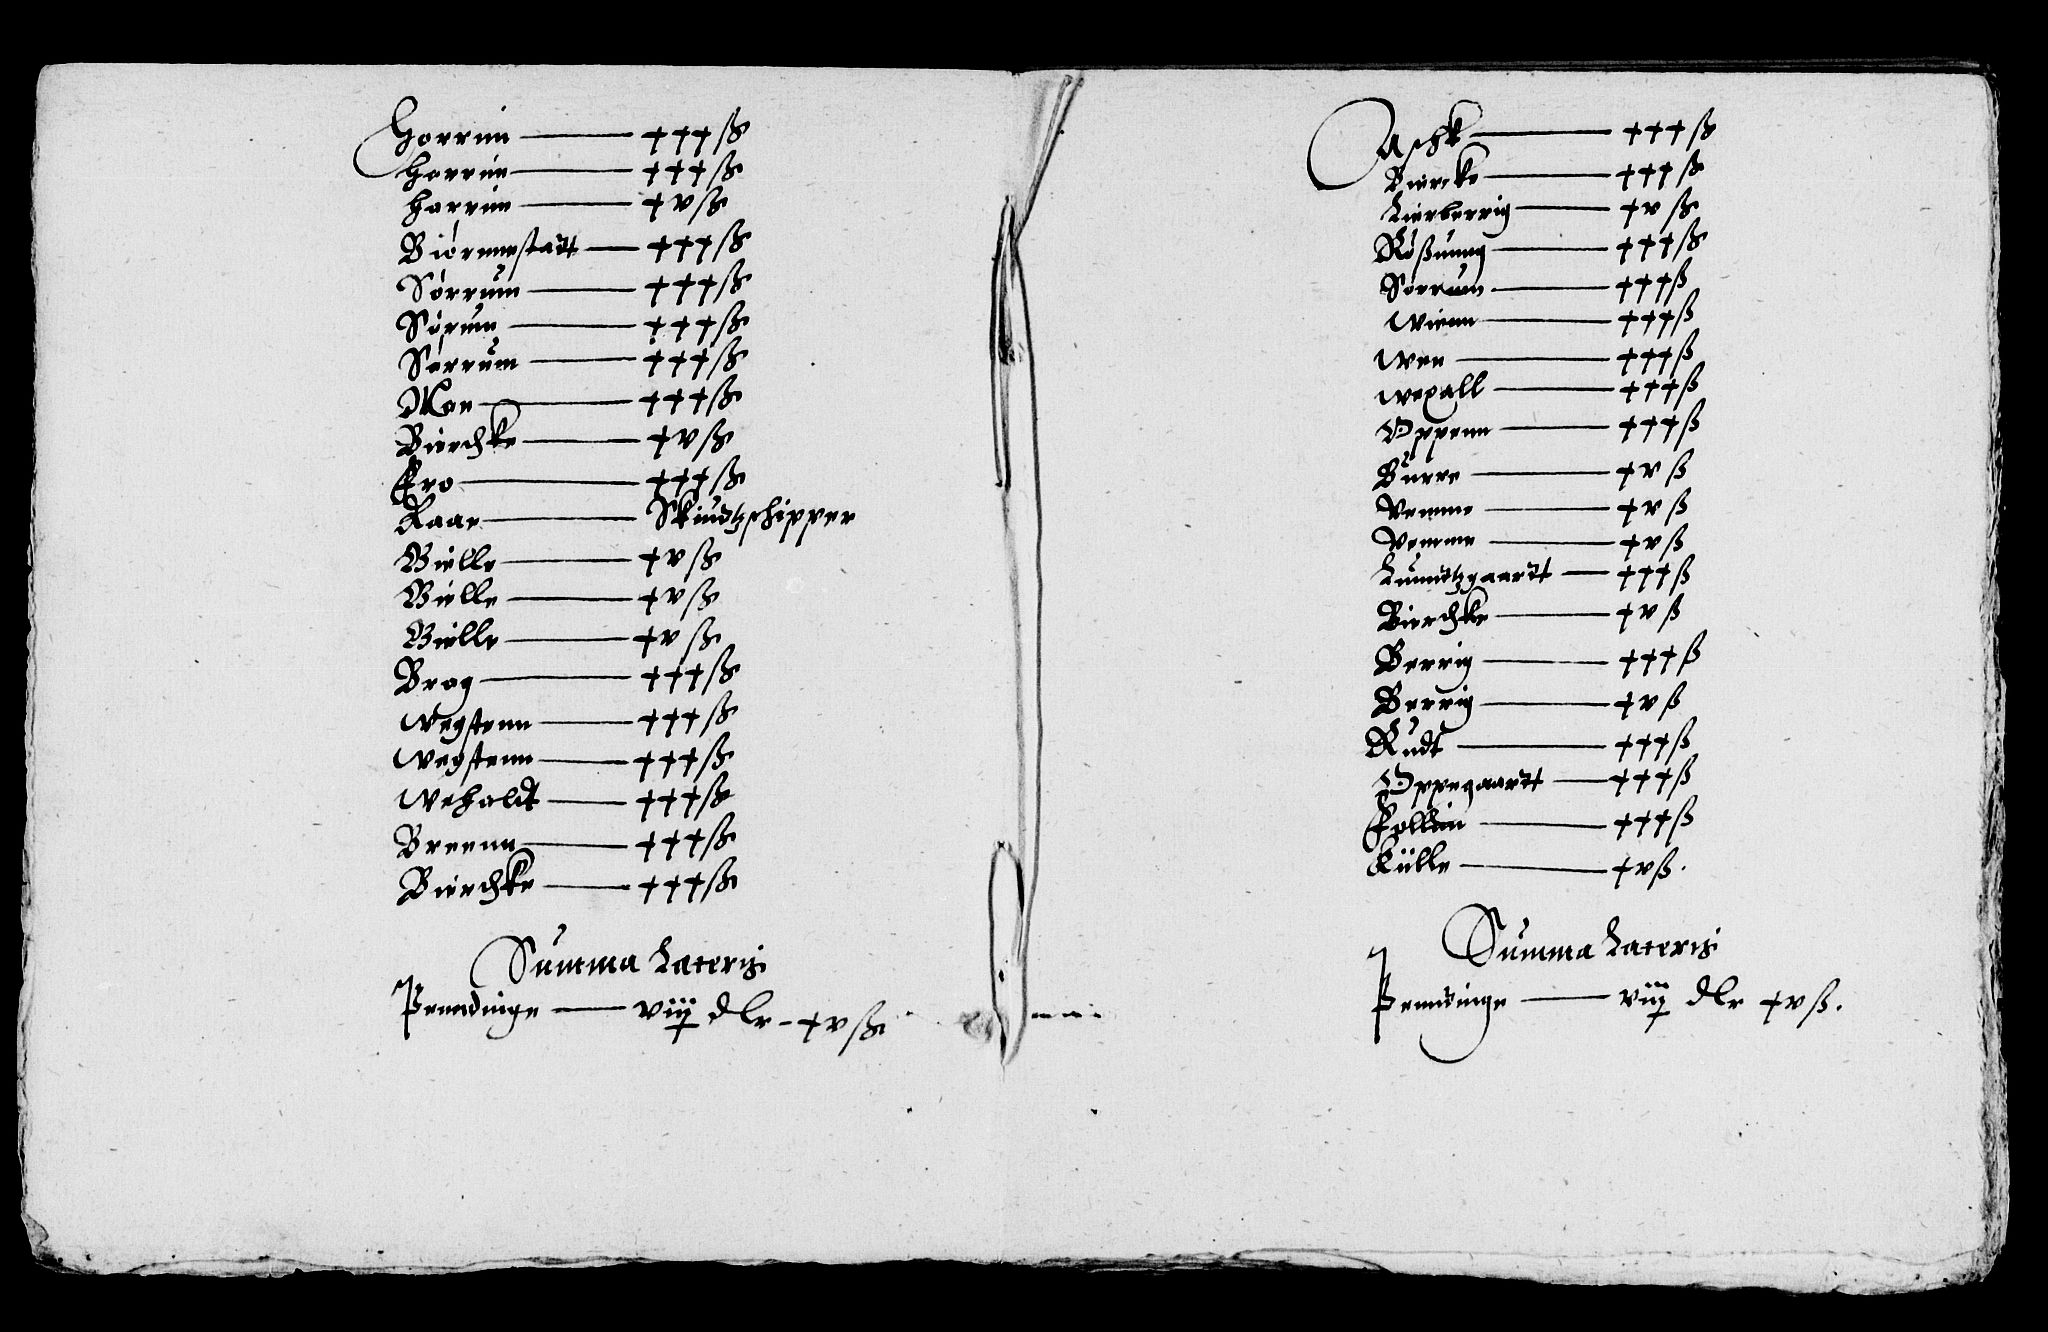 Horrim — xxx ß
Horrim — xxx ß
Harrim — xv ß
Biørnnestadt — xxx ß
Sørrum — xxx ß
Sørum — xxx ß
Sørrum — xxx ß
Moe — xxx ß
Bierchke — xv ß
Kro — xxx ß
Raae — Skiudtzschipper
Bielle — xv ß
Bielle — xv ß
Bielle — xv ß
Brog — xxx ß
Wegstenn — xxx ß
Wegstenn — xxx ß
Weholdt — xxx ß
Breenn — xxx ß
Bierchke — xxx ß
Summa Lateris
Penndinge — viij dlr – xv ß
Aschk — xxx ß
Biercke — xxx ß
Lierberrig — xv ß
Røßnung — xxx ß
Sørrum — xxx ß
Wienn — xxx ß
Wee — xxx ß
Wexall — xxx ß
Oppenn — xxx ß
Burre — xv ß
Vemme — xv ß
Vemme — xv ß
Lunndtzgaardt — xxx ß
Bierchke — xv ß
Berrig — xxx ß
Berrig — xv ß
Rudt — xxx ß
Oppegaardt — xxx ß
Kille — xv ß.
Summa Lateris
Penndinge — viij dlr xv ß.